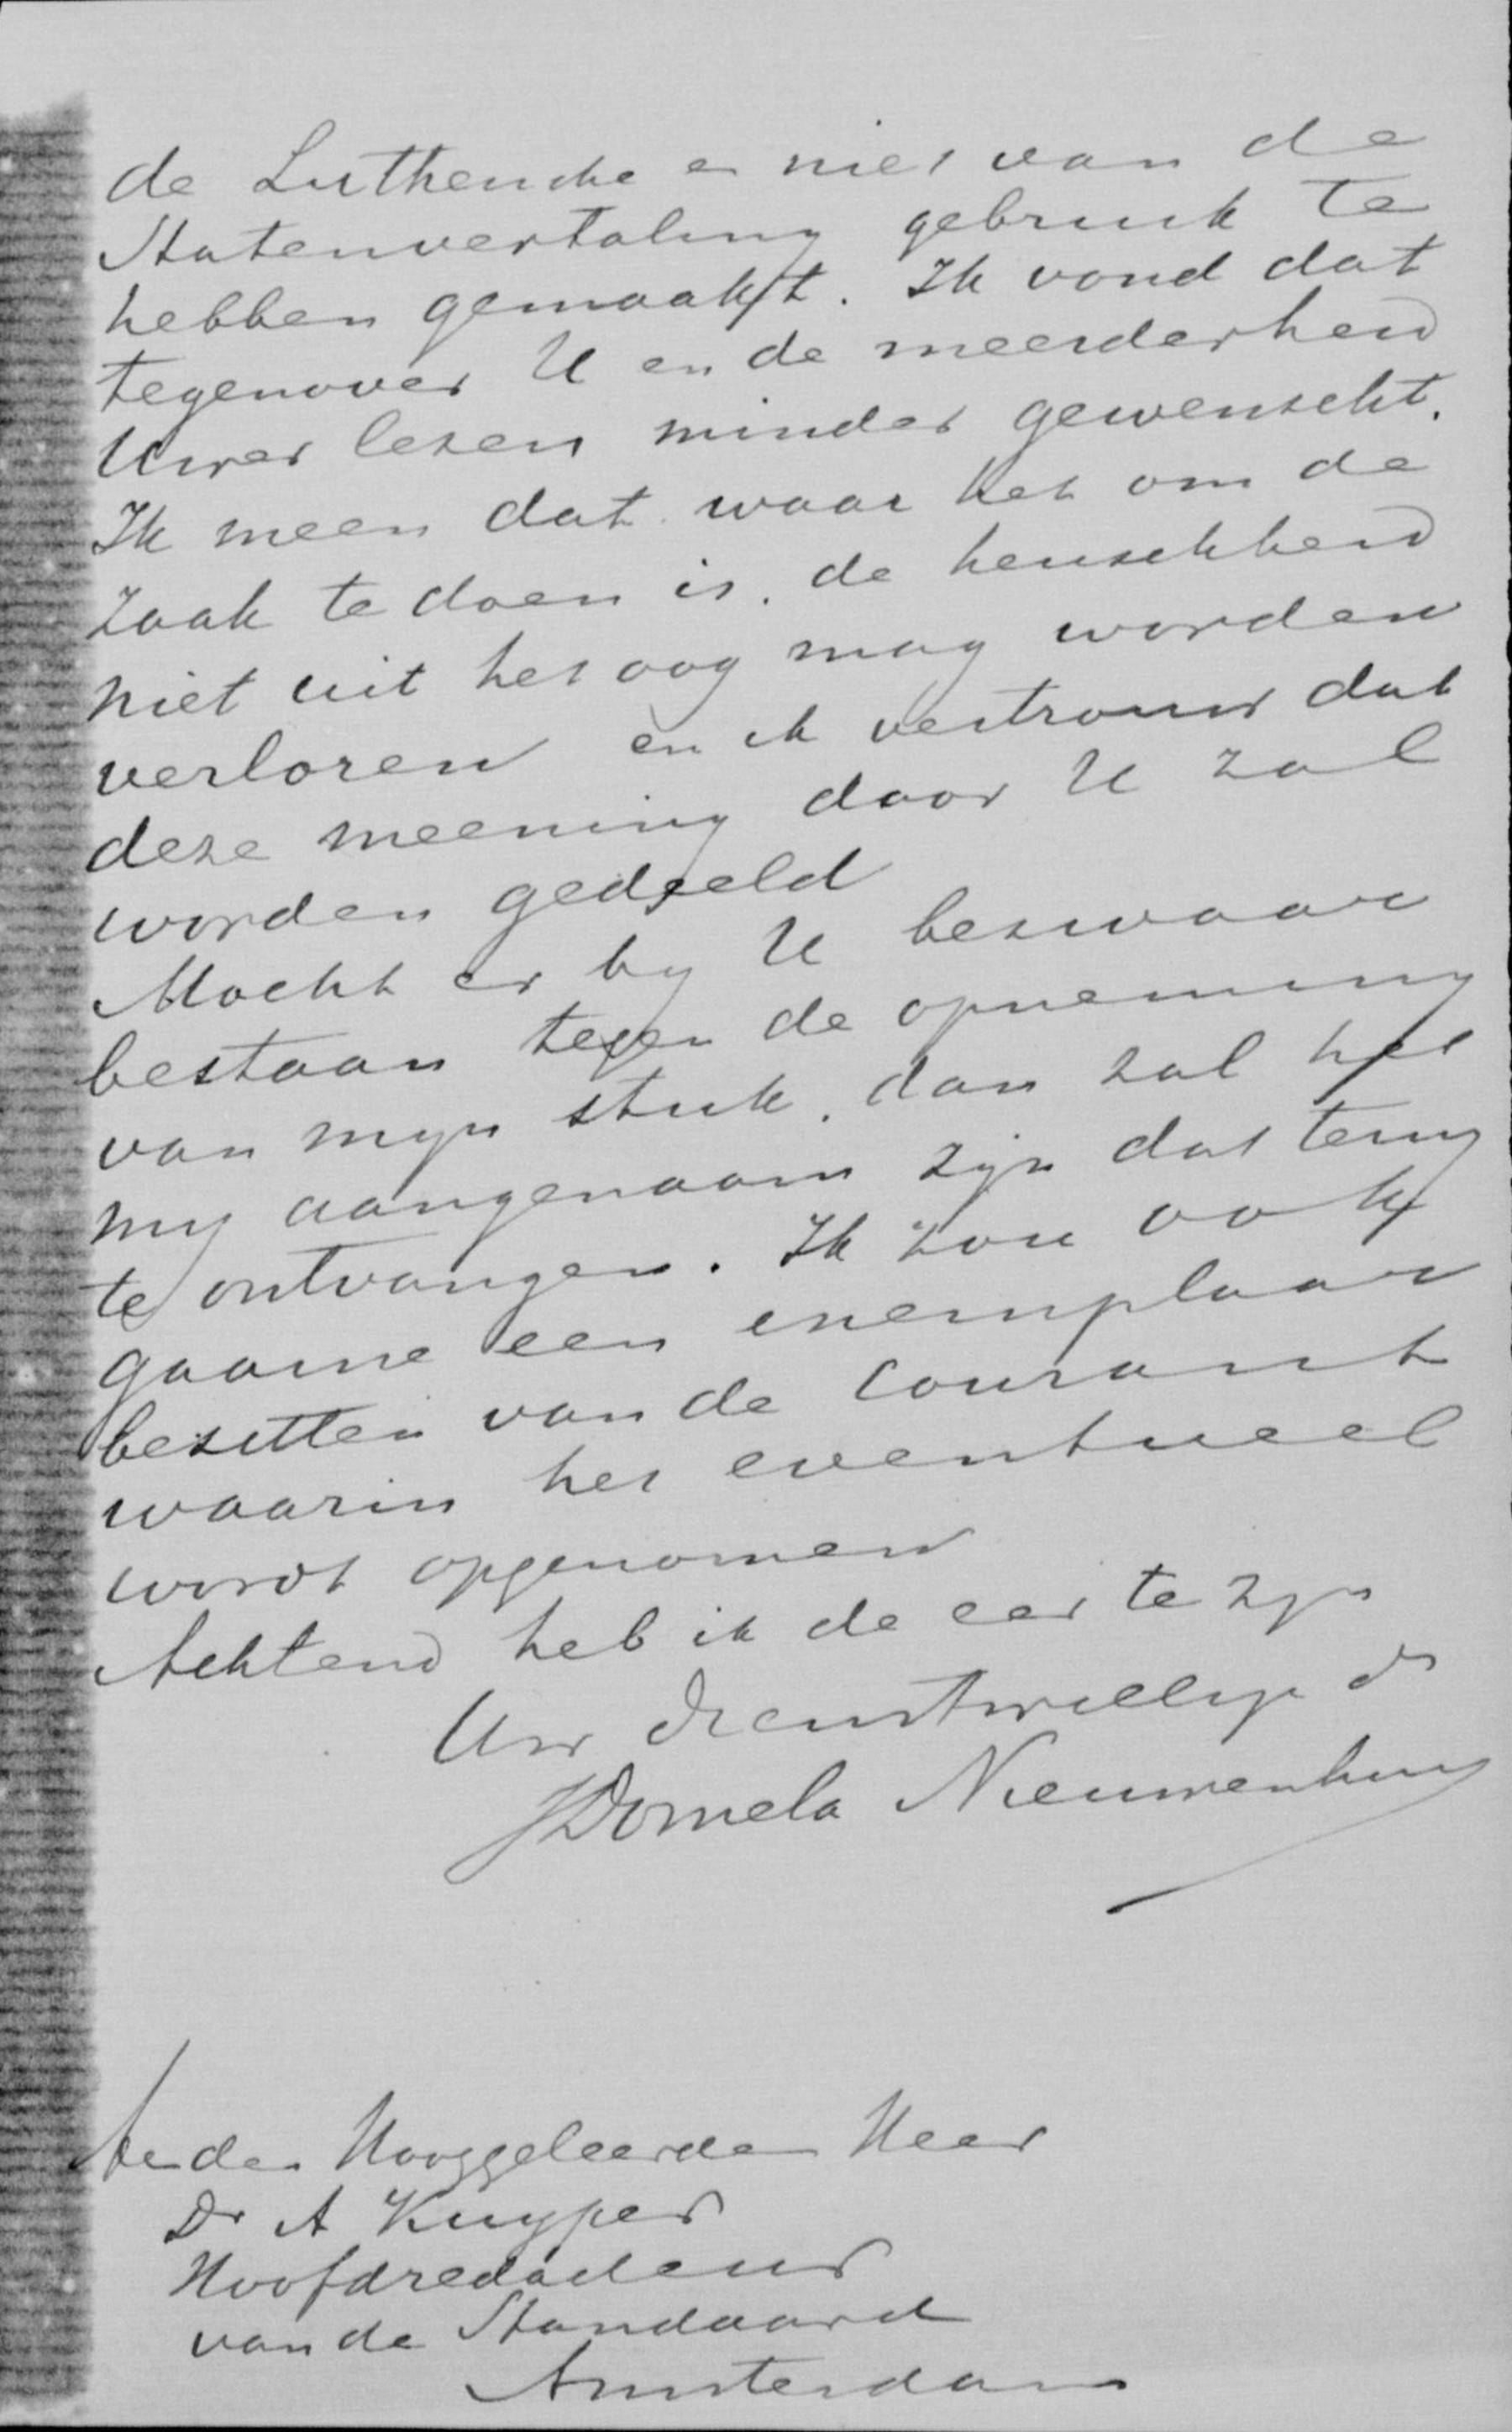 de Luthersche en niet van de
Statenvertaling gebruik te
hebben gemaakt. Ik vond dat
tegenover U en de meerderheid
Uwer lezers minder gewenscht.
Ik meen dat waar het om de
zaak te doen is, de heuschheid
niet uit het oog mag worden
verloren en ik vertrouw dat
deze meening door U zal
worden gedeeld
Mocht er by U bezwaar
bestaan tegen de opneming
van myn stuk, dan zal het
my aangenaam zijn dat terug
te ontvangen. Ik zou ook
gaarne een exemplaar
bezitten van de courant
waarin het eventueel
wordt opgenomen
Achtend heb ik de eer te zyn
Uw dienstwillige dr
JDomela Nieuwenhuys
Aan den Hooggeleerden Heer
Dr A Kuyper
Hoofdredacteur
van de Standaard
Amsterdam